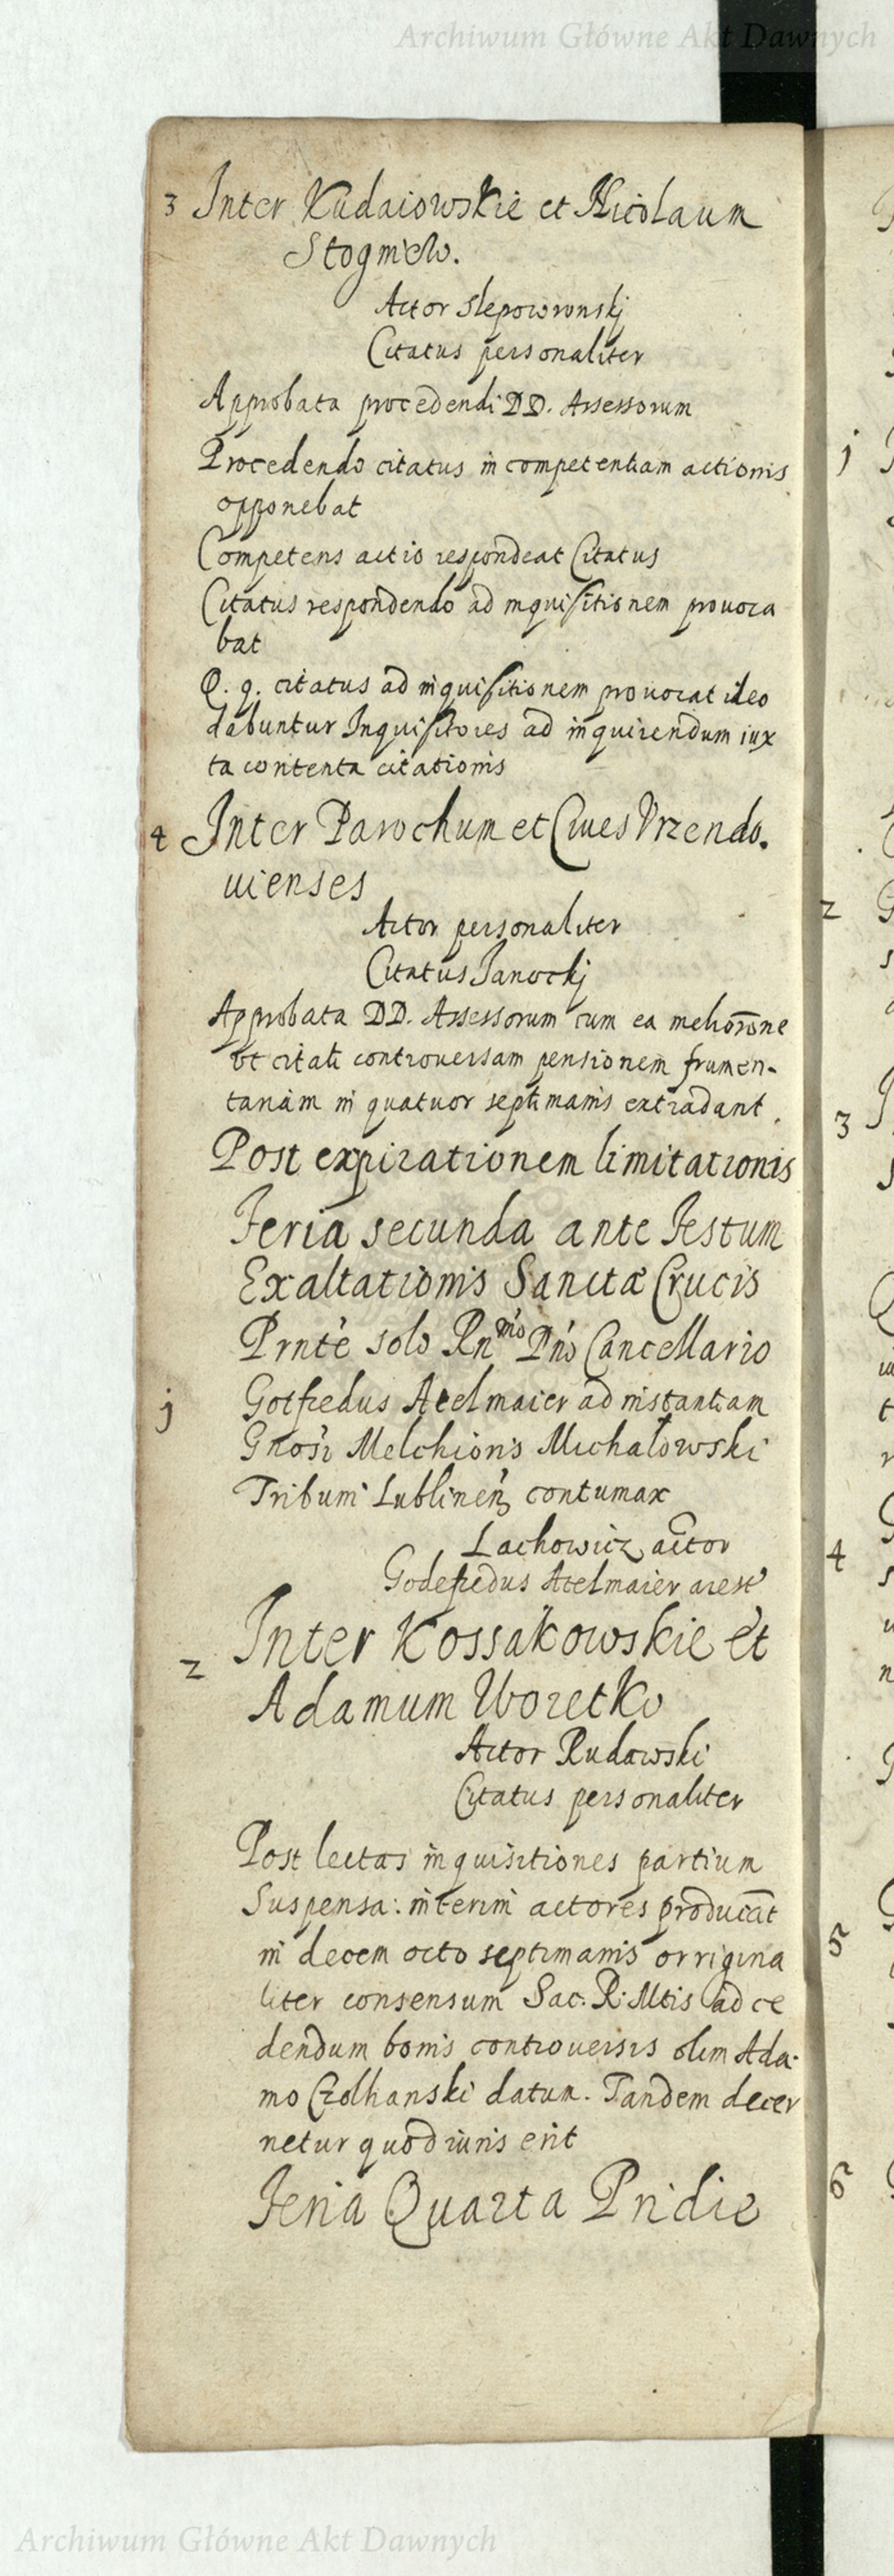 Archiwum Główne Akt Dawnych
3 Inter Kudaiowskie et Nicolaum
Stogniew.
Actor Slepowronskj
Citatus personaliter
Approbata procedendi DD. Assessorum
Procedendo citatus in competentiam actionis
opponebat
Competens actio respondeat Citatus
Citatus respondendo ad inquisitionem prouoca
bat
Q. q. citatus ad inquisitionem prouocat ideo
dabuntur Inquisitores ad inquirendum iux
ta contenta citationis
4 Inter Parochum et Ciues Vrzendo.
uienses
Actor personaliter
Citatus Janockj
Approbata DD. Assessorum cum ea meliorone
vt citati controuersam pensionem frumen-
tariam in quatuor septimanis extradant.
Post expirationem limitationis
Feria secunda ante Festum
Exaltationis Sanctæ Crucis
Prnte solo Rnmo Pno Cancellario
j Gotfredus Atelmaier ad instantiam
Gnosi Melchioris Michałowski
Tribuni Lublinen contumax
Lachowicz actor
Godefredus Atelmaier arest
2 Inter Kossakowskie et
Adamum Woretko
Actor Rudawski
Citatus personaliter
Post lectas inquisitiones partium
Suspensa: interim actores producāt
in decem octo septimanis orrigina
liter consensum Sac. R. Mtis ad ce
dendum bonis controuersis olim Ada-
mo Czolhanski datum. Tandem decer
netur quod iuris erit
Feria Quarta Pridie
j
2
3
4
5
6
Archiwum Główne Akt Dawnych